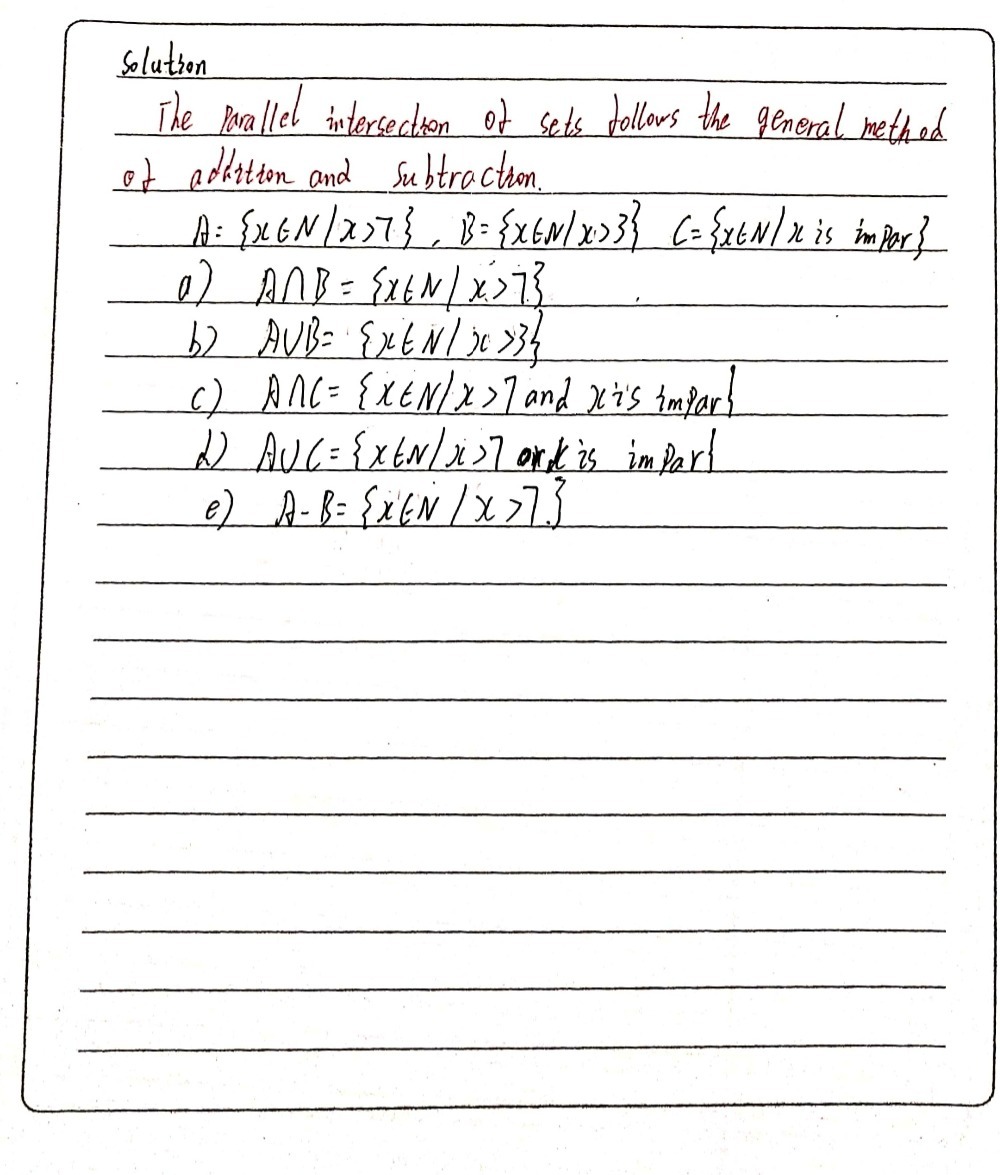 Solution
The Parallel intersection of sets follows the general method
of addition and Subtraction.
A= {x∈N/x>7}, B={x∈N/x>3} C={x∈N/x is impar}
a) A∩B = {x∈N/x>7}
b) A∪B= {x∈N/x>3}
c) A∩C= {x∈N/x>7 and x is impar}
d) A∪C= {x∈N/x>7 or x is impar}
e) A-B= {x∈N/x>7.}